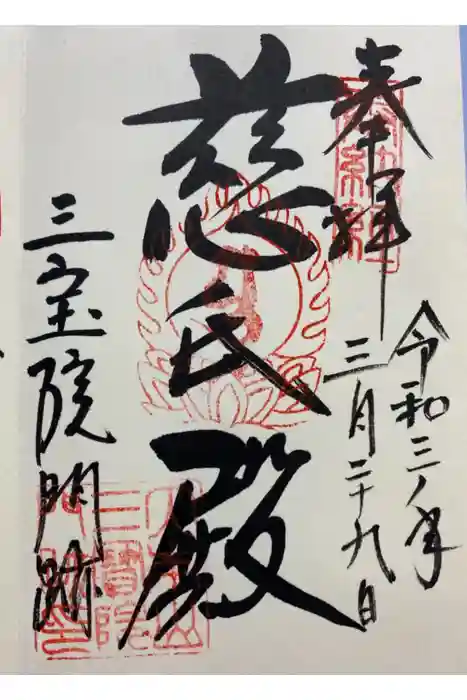 奉拝
令和三年
三月二十九日
慈氏殿
三宝院門跡